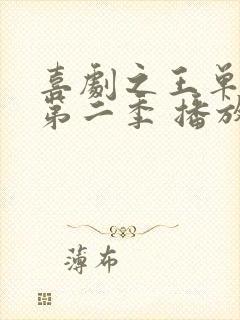 喜劇之王单
第二季 播放
薄布